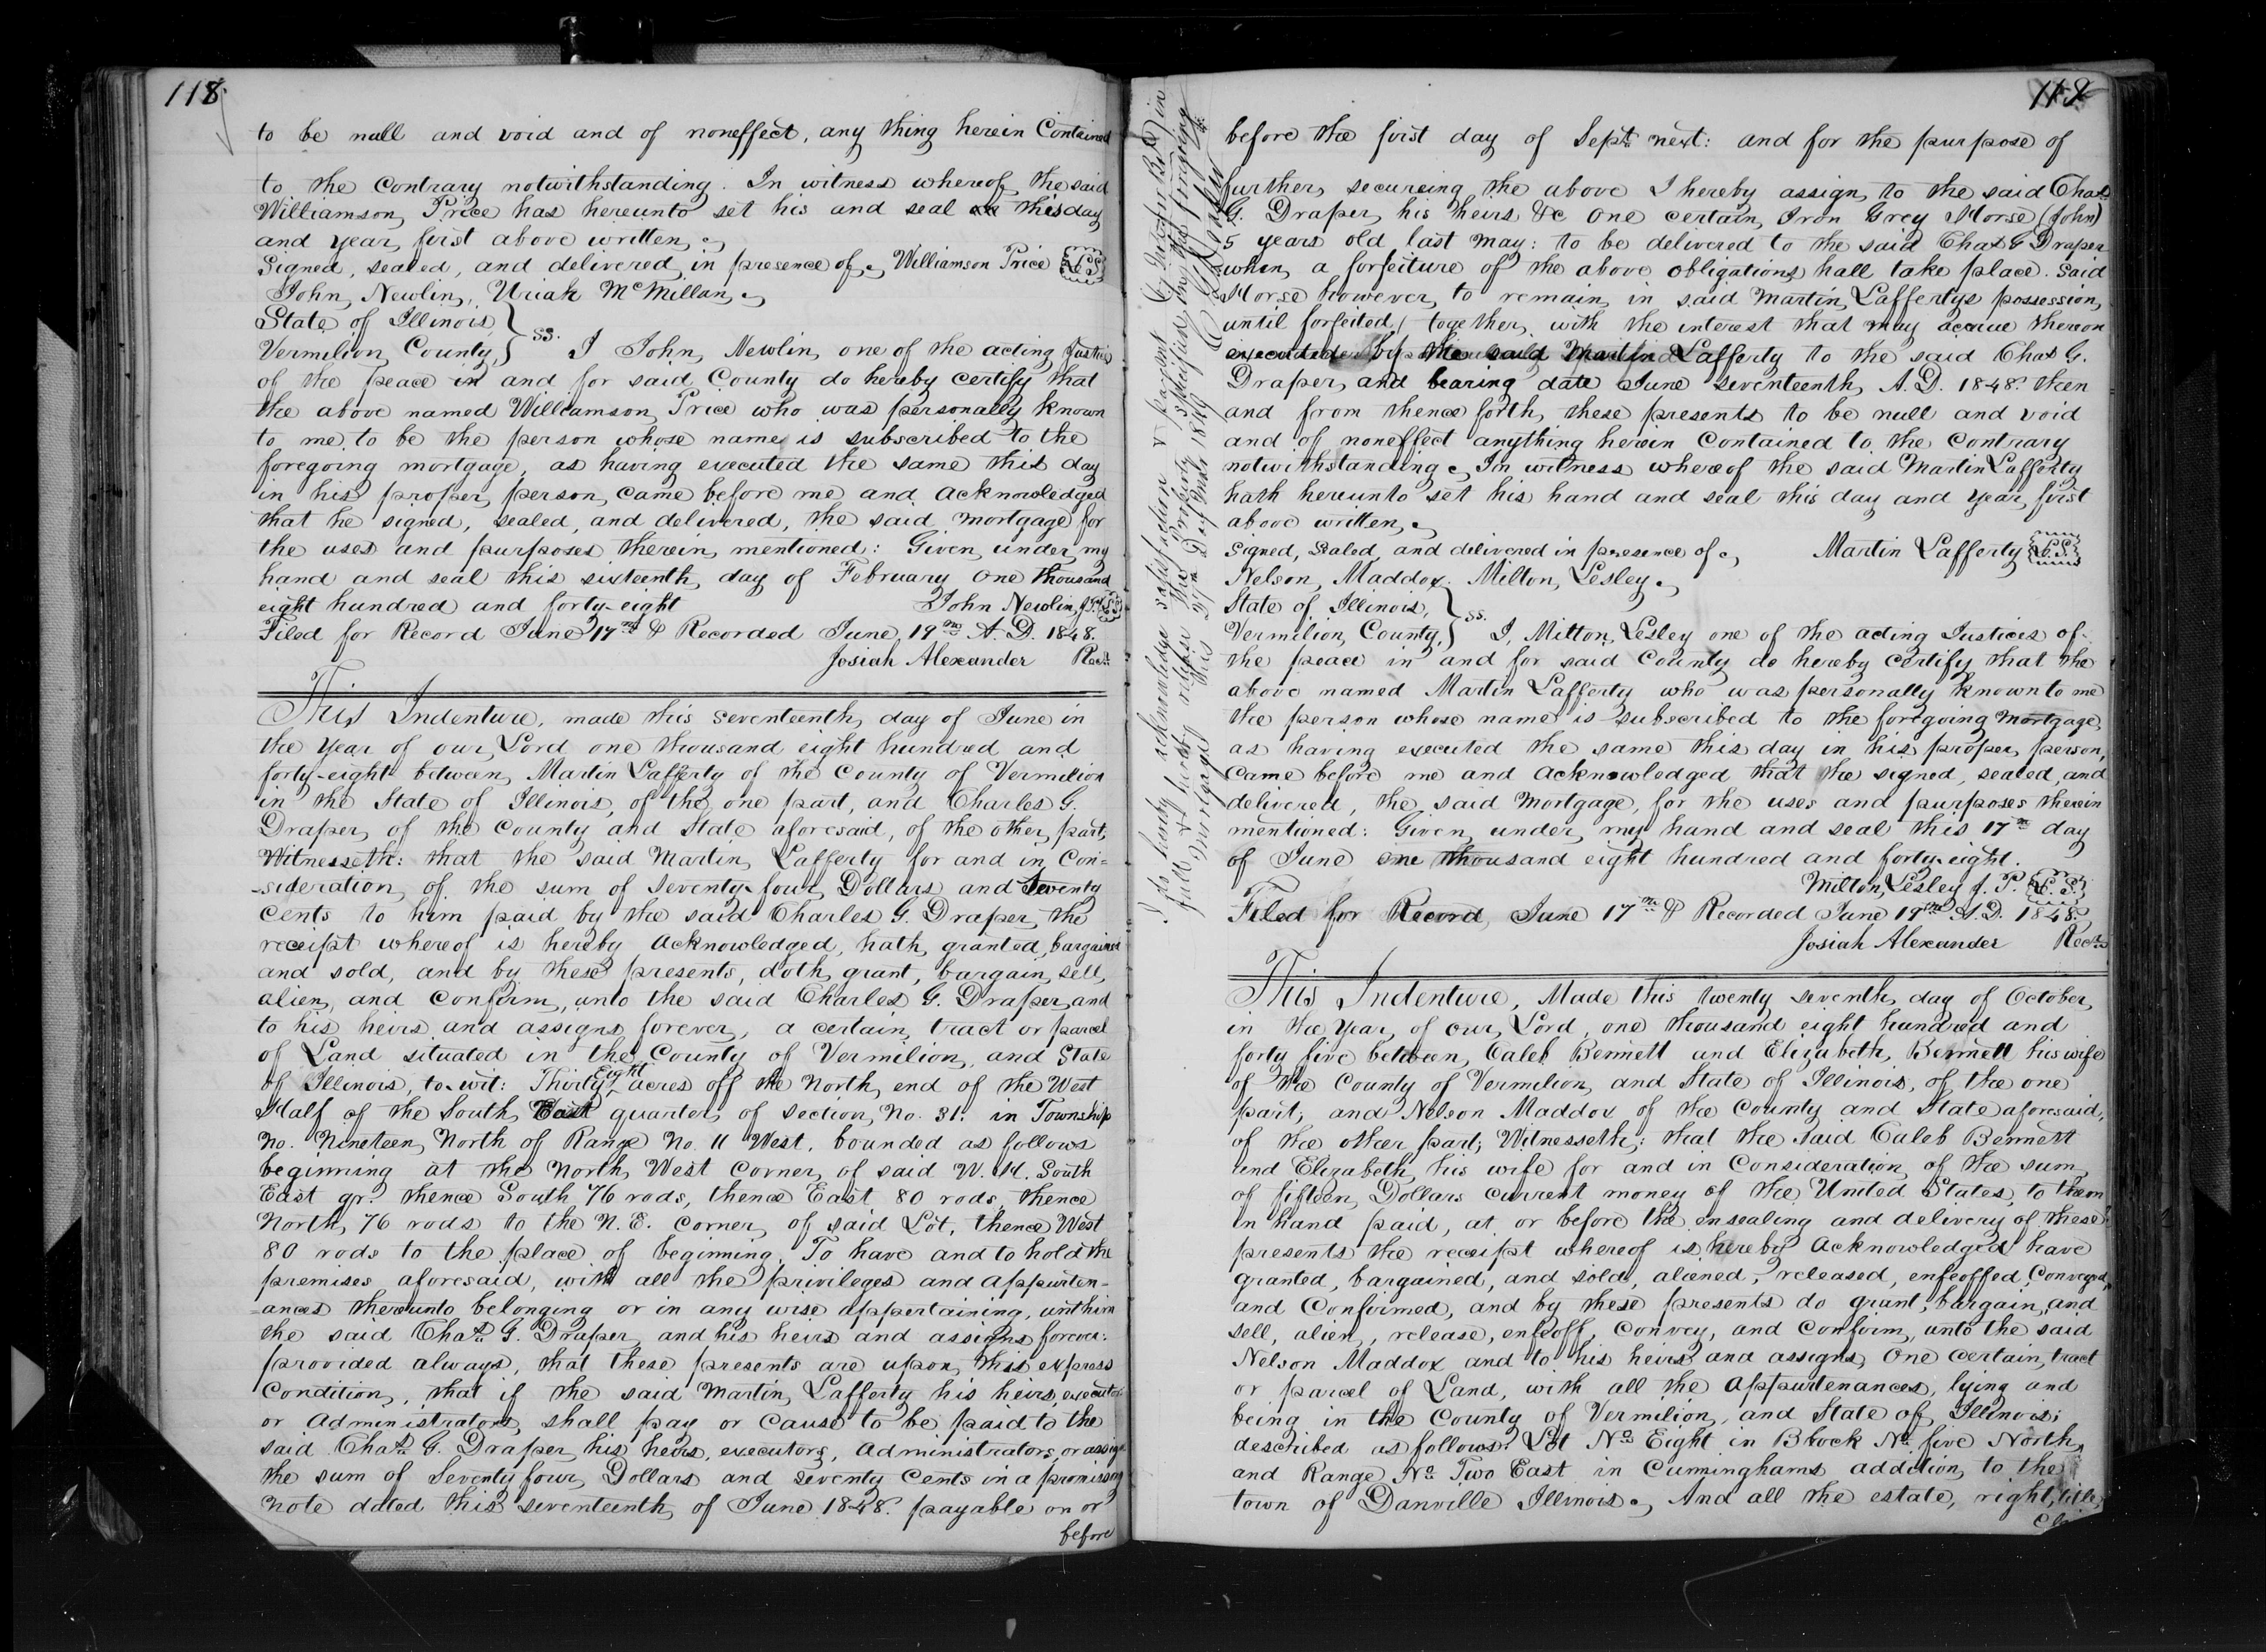 118
to be null and void and of noneffect, any thing herein Contained
to the Contrary notwithstanding. In witness whereof the said
Williamson Price has hereunto set his and seal this day
and year first above written.
Signed, sealed, and delivered in presence of Williamson Price L.S.
John Newlin, Uriah McMillan.
State of Illinois }
Vermilion County, } ss. I John Newlin one of the acting Justices
of the peace in and for said County do hereby certify that
the above named Williamson Price who was personally known
to me to be the person whose name is subscribed to the
foregoing mortgage, as having executed the same this day
in his proper person came before me and acknowledged
that he signed, sealed, and delivered, the said mortgage for
the uses and purposes therein mentioned: Given under my
hand and seal this sixteenth day of February One thousand
eight hundred and forty-eight John Newlin J.P. L.S.
Filed for Record June 17th & Recorded June 19th A.D. 1848.
Josiah Alexander Recr
This Indenture, made this seventeenth day of June in
the Year of our Lord one thousand eight hundred and
forty-eight between Martin Lafferty of the County of Vermilion
in the State of Illinois, of the one part, and Charles G.
Draper of the County and State aforesaid, of the other part;
Witnesseth: that the said Martin Lafferty for and in Con=
-sideration of the sum of Seventy-four Dollars and Seventy
Cents to him paid by the said Charles G. Draper the
receipt whereof is hereby Acknowledged, hath granted, bargained
and sold, and by these presents, doth grant, bargain, sell,
alien, and Confirm, unto the said Charles G. Draper and
to his heirs and assigns forever, a certain tract or parcel
of Land situated in the County of Vermilion, and State
of Illinois, to-wit: Thirty Eight acres off the North end of the West
Half of the South East quarter of section No. 31. in Township
No. Nineteen North of Range No 11 West. bounded as follows
beginning at the North West Corner of said W. H. South
East qr. thence South 76 rods, thence East 80 rods, thence
North 76 rods to the N.E. corner of said Lot, thence West
80 rods to the place of beginning. To have and to hold the
premises aforesaid, with all the privileges and Appurten-
-ances thereunto belonging or in any wise Appertaining, unto him
the said Chas. G. Draper and his heirs and assigns forever:
provided always, that these presents are upon this express
Condition, that if the said Martin Lafferty his heirs, executors
or Administrators shall pay or cause to be paid to the
said Chas. G. Draper his heirs, executors, Administrators, or assigns
the sum of Seventy four Dollars and seventy Cents in a promissory
note dated this seventeenth of June 1848. payable on or
before
I do hereby acknowledge satisfaction
full & hereby release the property specified in the foregoing
mortgage this
before the first day of Sept. next: and for the purpose of
further secureing the above I hereby assign to the said Chas.
G. Draper his heirs &c One certain Iron Grey Horse (John)
5 years old last May: to be delivered to the said Chas G Draper
when a forfeiture of the above obligations hall take place. Said
Horse however to remain in said Martin Laffertys possession
until forfeited / together with the interest that may accrue thereon
executed by the said Martin Lafferty to the said Chas G.
Draper and bearing date June seventeenth A.D. 1848. then
and from thence forth these presents to be null and void
and of noneffect anything herein Contained to the Contrary
notwithstanding. In witness whereof the said Martin Lafferty
hath hereunto set his hand and seal this day and year first
above written.
Signed, Sealed, and delivered in presence of Martin Lafferty L.S.
Nelson Maddox. Milton Lesley.
State of Illinois, }
Vermilion County, } ss. I, Milton Lesley one of the acting Justices of
the peace in and for said County do hereby certify that the
above named Martin Lafferty who was personally known to me
the person whose name is subscribed to the foregoing mortgage,
as having executed the same this day in his proper person,
Came before me and acknowledged that he signed, sealed, and
delivered, the said Mortgage, for the uses and purposes therein
mentioned: Given under my hand and seal this 17th day
of June one thousand eight hundred and forty-eight.
Milton Lesley J. P. L. S.
Filed for Record June 17th & Recorded June 19th A.D. 1848.
Josiah Alexander Recr
This Indenture, Made this twenty seventh day of October
in the Year of our Lord, one thousand eight hundred and
forty five between Caleb Bennett and Elizabeth Bennett his wife
of the County of Vermilion and State of Illinois, of the one
part; and Nelson Maddox of the County and State aforesaid,
of the other part; Witnesseth; that the said Caleb Bennett
and Elizabeth his wife for and in Consideration of the sum
of fifteen Dollars current money of the United States, to them
in hand paid, at or before the ensealing and delivery of these
presents the receipt whereof is hereby Acknowledged have
granted, bargained, and sold, aliened, released, enfeoffed, Conveyed,
and Confirmed, and by these presents do grant, bargain, and
sell, alien, release, enfeoff, Convey, and Confirm, unto the said
Nelson Maddox and to his heirs and assigns One certain tract
or parcel of Land, with all the Appurtenances, lying and
being in the County of Vermilion, and State of Illinois;
described as follows: Lot No. Eight in Block No. five North
and Range No. Two East in Cunninghams addition to the
town of Danville Illinois. And all the estate, right, title,